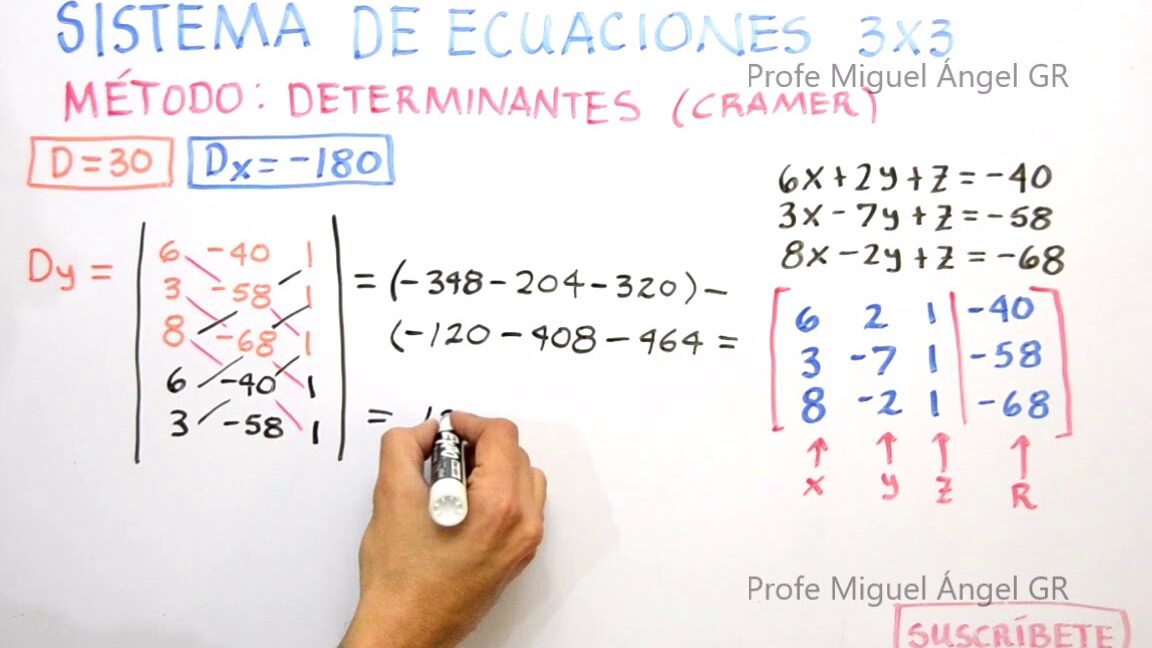 SISTEMA DE ECUACIONES 3X3
Profe Miguel Ángel GR
MÉTODO: DETERMINANTES (CRAMER)
D=30 Dx=-180
6x+2y+z=-40
3x-7y+z=-58
8x-2y+z=-68
Dy =
6 -40 1
3 -58 1
8 -68 1
6 -40 1
3 -58 1
= (-348-204-320)-
(-120-408-464 =
=
6 2 1 -40
3 -7 1 -58
8 -2 1 -68
x y z R
Profe Miguel Ángel GR
SUSCRÍBETE